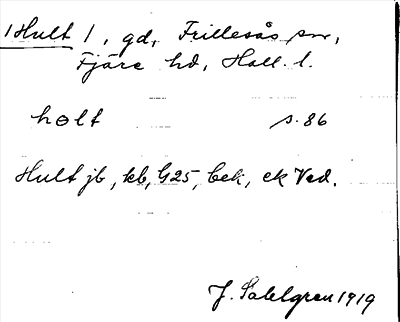 1 Hult 1, gd, Frillesås sn,
Fjäre hd, Hall. l.
holt s. 86
Hult jb, kb, G25, bek, ek Ved.
J. Sahlgren 1919